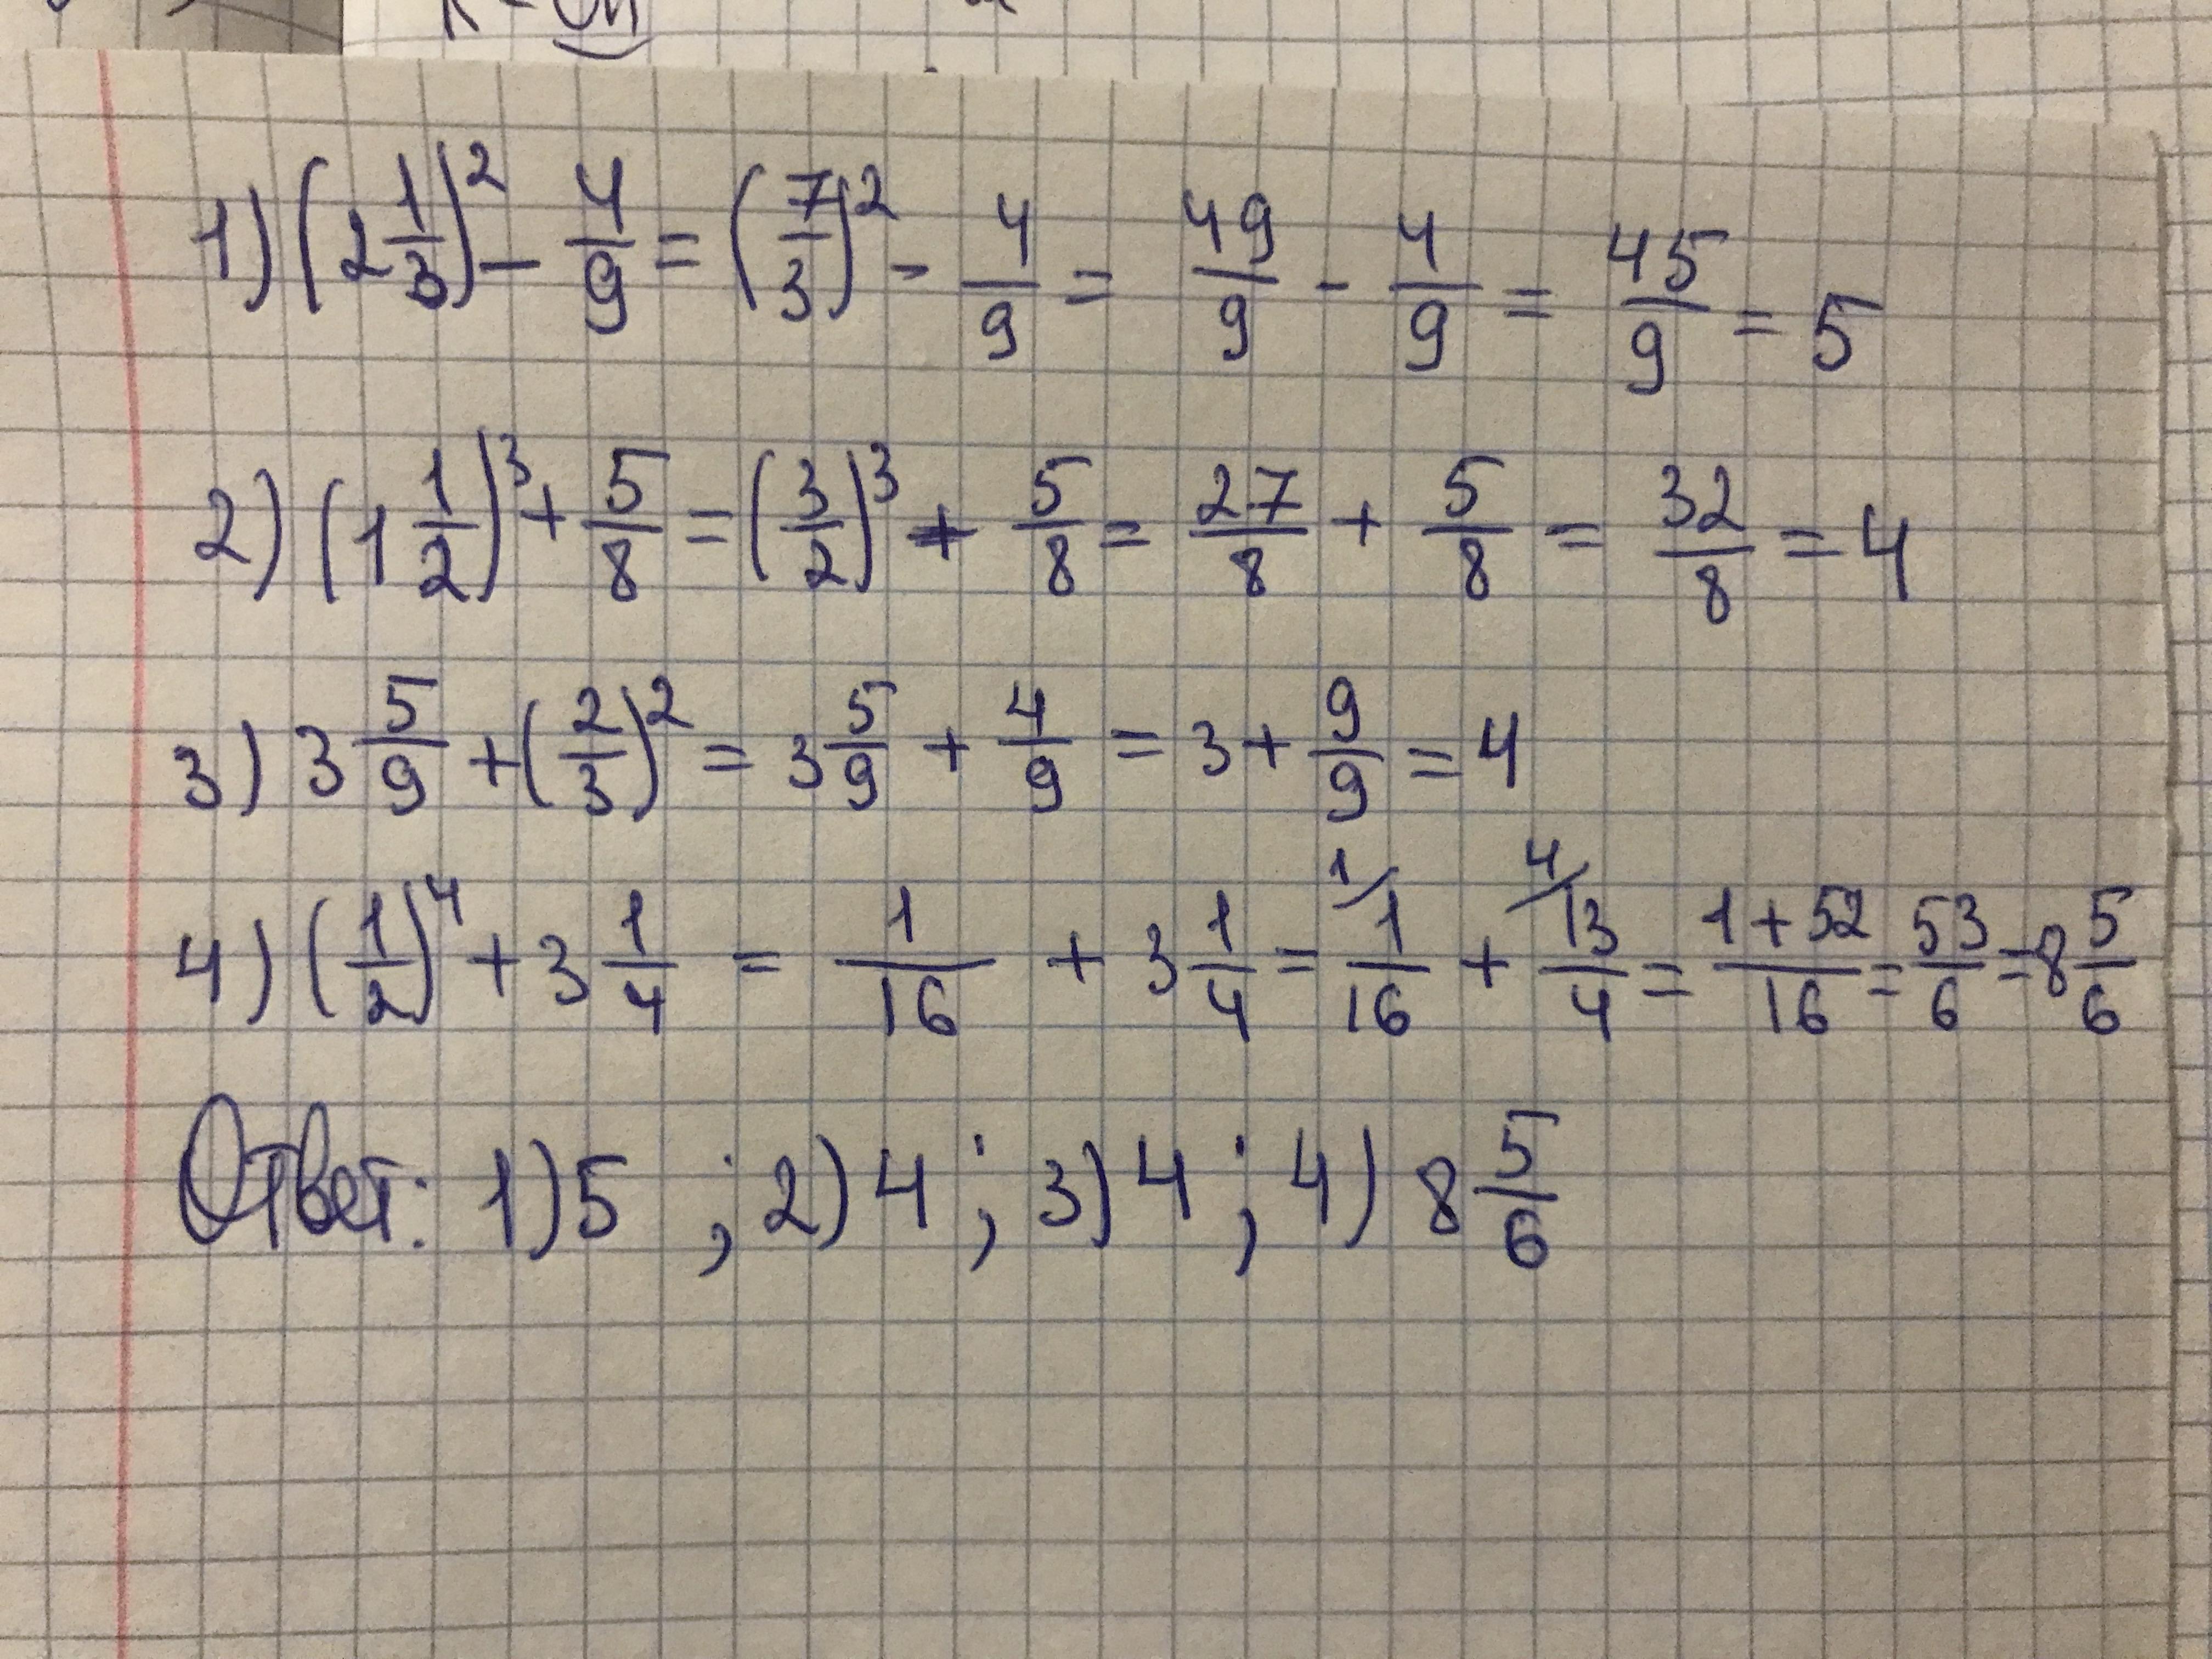 1) (2 1/3)² - 4/9 = (7/3)² - 4/9 = 49/9 - 4/9 = 45/9 = 5
2) (1 1/2)³ + 5/8 = (3/2)³ + 5/8 = 27/8 + 5/8 = 32/8 = 4
3) 3 5/9 + (2/3)² = 3 5/9 + 4/9 = 3 + 9/9 = 4
4) (1/2)⁴ + 3 1/4 = 1/16 + 3 1/4 = ¹⁄ 1/16 + ⁴⁄ 13/4 = 1+52/16 = 53/6 = 8 5/6
Ответ: 1) 5 ; 2) 4 ; 3) 4 ; 4) 8 5/6